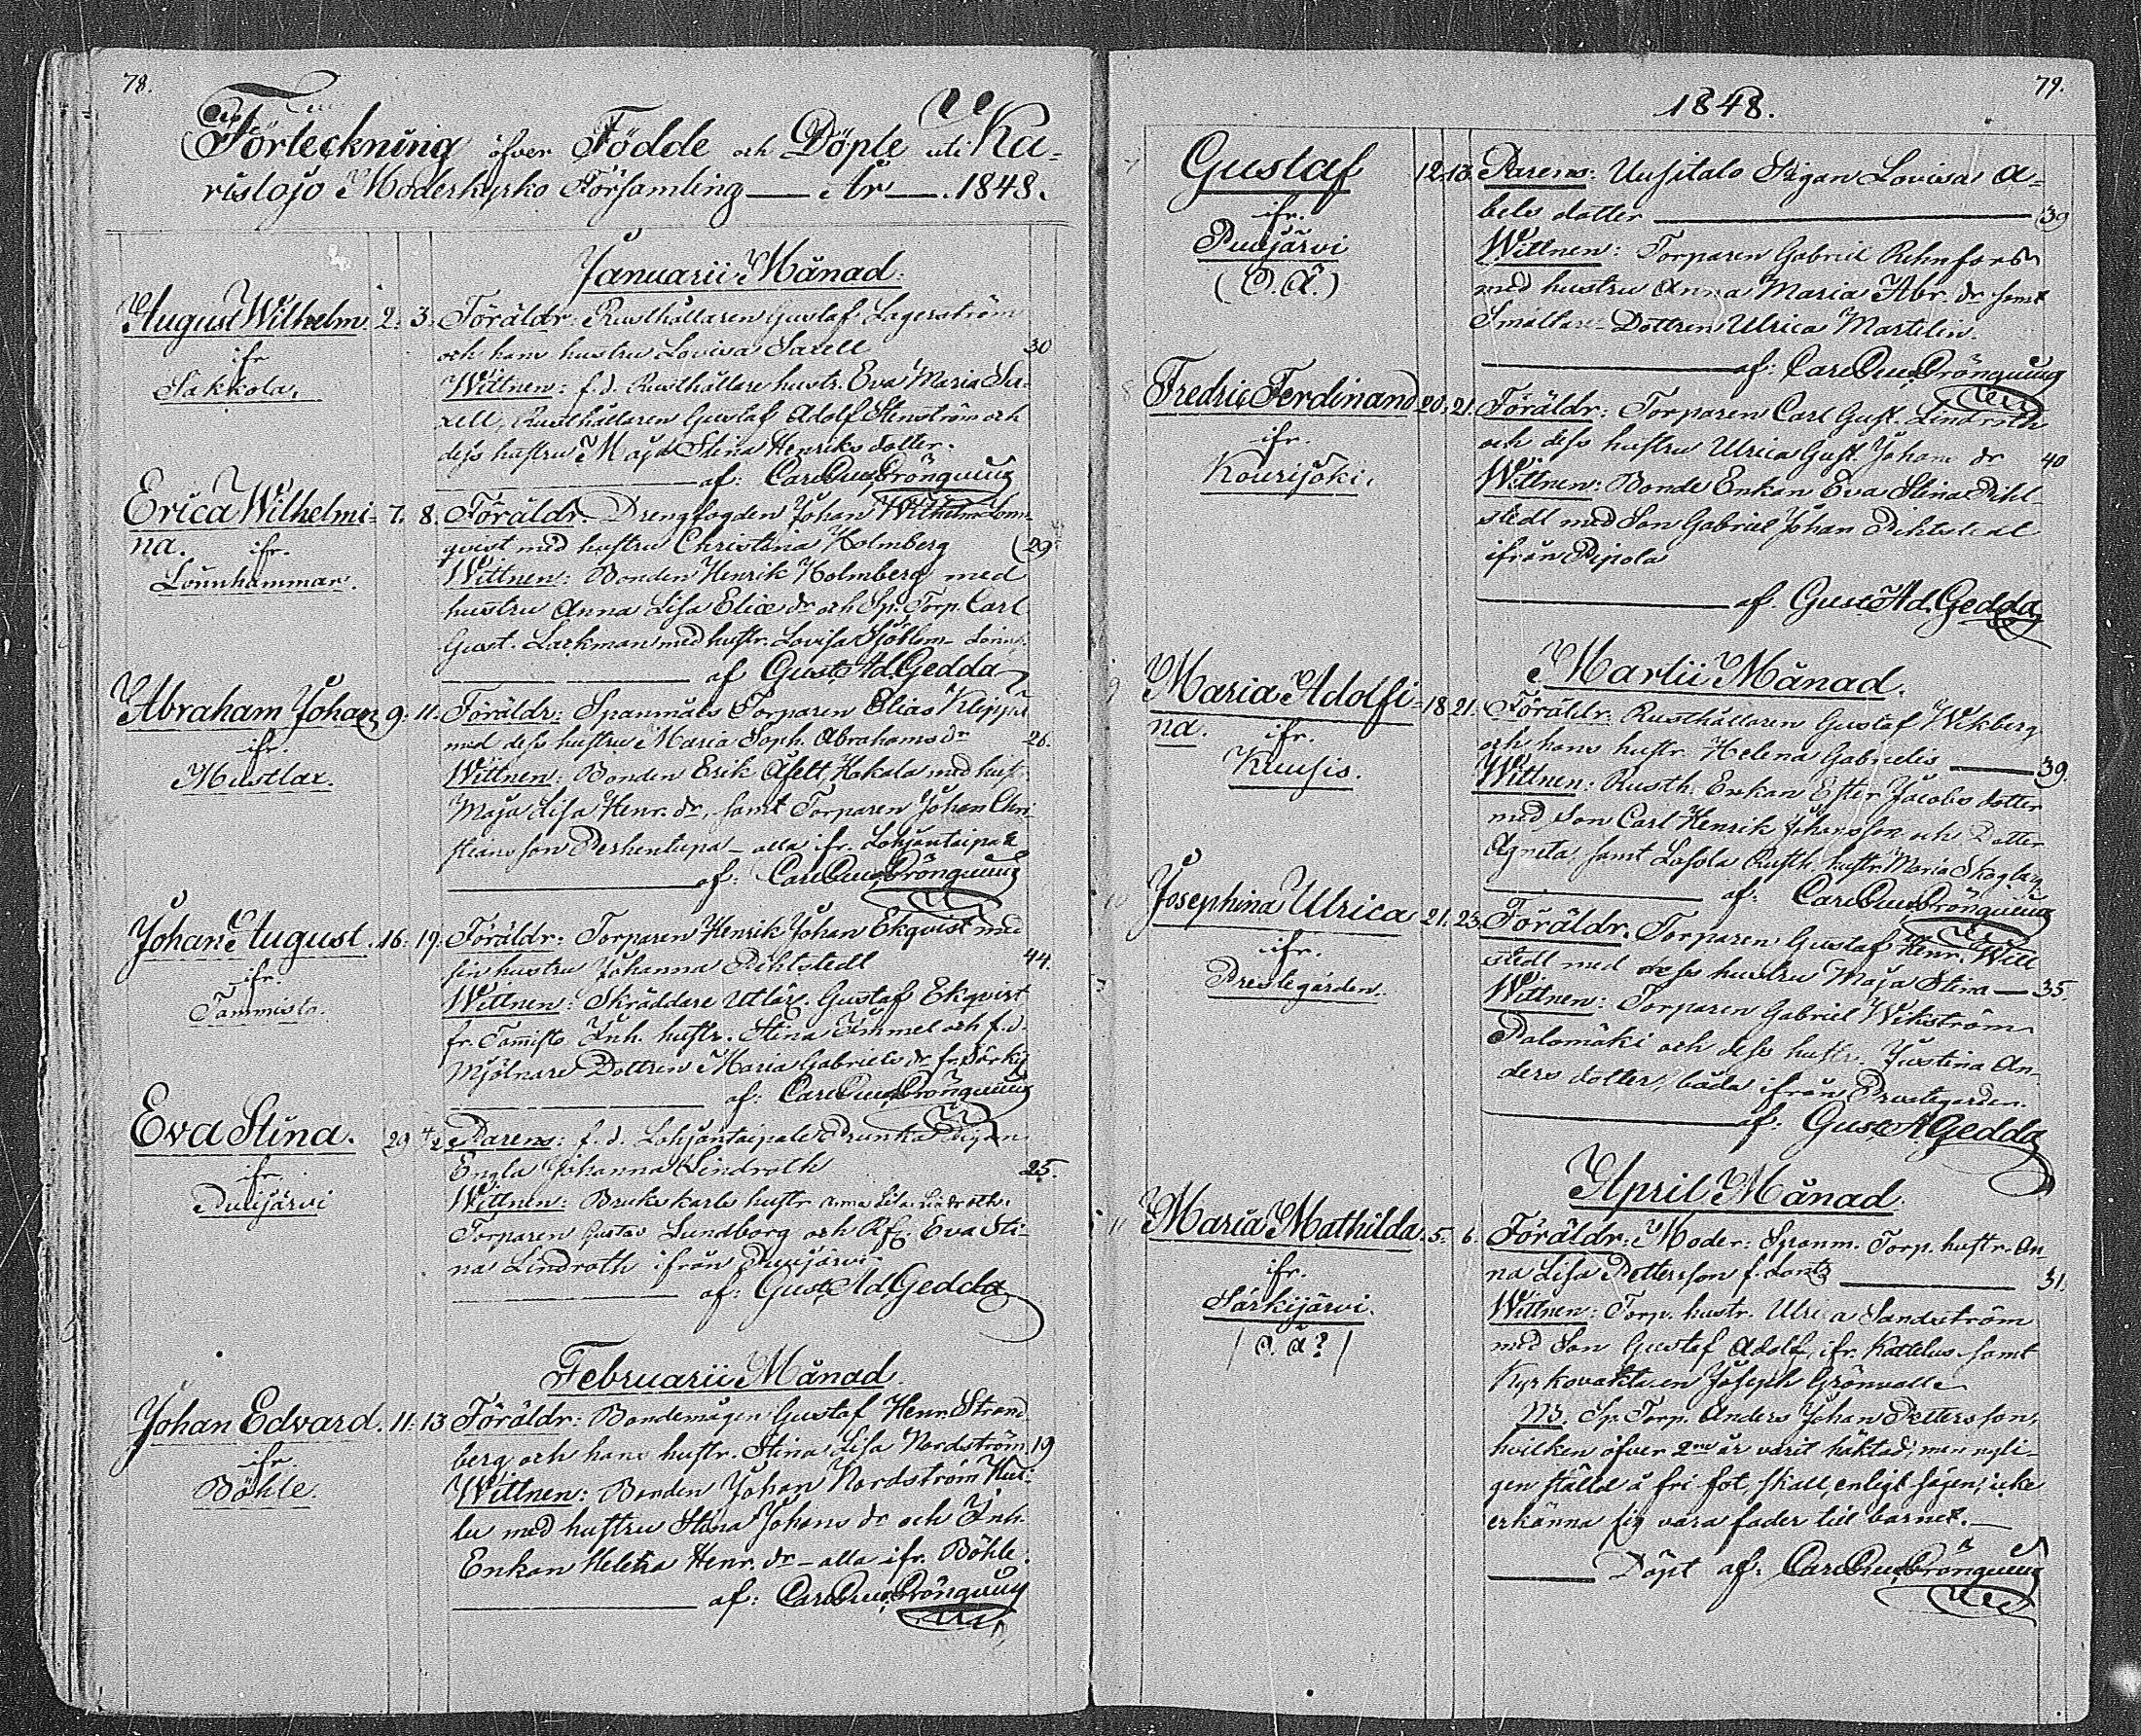 78.
Förteckning öfver Födde och Döpte uti Ka-
rislojo Moderkyrko Församling — År — 1848.
Januarii Månad.
August Wilhelm 2. 3. Föräldr: Rusthållaren Gustaf Lagerström
ifr. och hans hustru Lovisa Saxell 30
Sakkola. Wittnen: f.d. Rusthållare hustr. Eva Maria Sa-
xell, Rusthållaren Gustaf Adolf Stenström och
dess hustru Maja Stina Henriks dotter.
af: Carl
Erica Wilhelmi- 7. 8. Föräldr. Drengfogden Johan Wilhelm Lönn-
na. ifr. qvist med hustru Christina Holmberg (29
Lönnhammar. Wittnen: Bonden Henrik Holmberg med
hustru Anna Lisa Eliæ dr och Sp. Torp. Carl
Gust. Lackman med hustr. Lovisa Sjöblom
af Gust. Ad. Gedda
Abraham Johan 9. 11. Föräldr: Spanmåls Torparen Elias
ifr. med dess hustru Maria Soph. Abrahams dr 26.
Mustlax. Wittnen: Bonden Erik Hakala med hustr
Maja Lisa Henr. dr, samt Torparen Johan Chri-
stians son – alla ifr. Lohjantaipale
af: Carl
Johan August. 16. 19. Föräldr: Torparen Henrik Johan Ekqvist med
ifr. sin hustru Johanna Pihtstedt 44.
Tammisto. Wittnen: Skräddare Utlär. Gustaf Ekqvist
fr. Tamisto Inh. hustr. Stina Immel och f.d.
Mjölnare Dottren Maria Gabriels dr fr. Särkij
af: Carl
Eva Stina. 29 4/2 Parens: f.d. Lohjantaipale Prunka Pigan
ifr. Engla Johanna Lindroth 25.
Puujärvi Wittnen: Bruks karls hustr Anna Lisa Lindroth.
Torparen Gustav Sundborg och Eva Sti-
na Lindroth ifrån Puujärvi
af: Gust. Ad. Gedda
Februarii Månad.
Johan Edvard. 11. 13 Föräldr: Bondemågen Gustaf Henr. Strand
ifr. berg och hans hustr. Stina Lisa Nordström 19
Böhle. Wittnen: Bonden Johan Nordström
med hustru Stina Johans dr och Inh.
Enkan Helena Henr. dr – alla ifr. Böhle.
af: Carl
79.
1848.
7 Gustaf 12. 13. Parens: Uusitalo Pigan Lovisa A-
ifr. bels dotter — 39
Puujärvi Wittnen: Torparen Gabriel Rehnfors
(O.Ä.) med hustru Anna Maria Abr. dr samt
Smältare Dottren Ulrica Martelin.
af: Carl
8 Fredric Ferdinand 20. 21. Föräldr: Torparen Carl Gust. Lindroth
ifr. och dess hustru Ulrica Gust. Johans dr 40
Kourijoki. Wittnen: Bonde Enkan Eva Stina Piht-
stedt med Son Gabriel Johan Pihtstedt
ifrån Pipola
af. Gust. Ad. Gedda
Martii Månad.
9 Maria Adolfi- 18 21. Föräldr. Rusthållaren Gustaf Wikberg
na. ifr. och hans hustr. Helena Gabrielis — 39.
Kuusis. Wittnen: Rusth. Enkan Ester Jacobs dotter
med Son Carl Henrik Johansson och Dotter
Agneta, samt Lasola Rusth. hustr. Maria
af: Carl
10 Josephina Ulrica 21. 23. Föräldr. Torparen Gustaf Henr. Will
ifr. stedt med dess hustru Maja Stina — 35.
Prestegården. Wittnen: Torparen Gabriel Wikström
Palomäki och dess hustr. Justina An-
ders dotter, båda ifrån Prestegården.
af: Gust. A Gedda
April Månad.
11 Maria Mathilda. 5. 6. Föräldr: Moder: Spanm. Torp. hustr. An
ifr. na Lisa Pettersson f. Lantz — 31.
Särkijärvi. Wittnen: Torp. hustr. Ulrica Sandström
/ O.Ä? / med Son Gustaf Adolf, ifr. Kattelus samt
Kyrkovaktaren Joseph Grönvall
NB. Sp. Torp. Anders Johan Pettersson,
hvilken öfver 2ne år varit häktad, men nyli-
gen ställd å fri fot, skall, enligt sägen, icke
erkänna sig vara fader till barnet. —
Döpt af: Carl